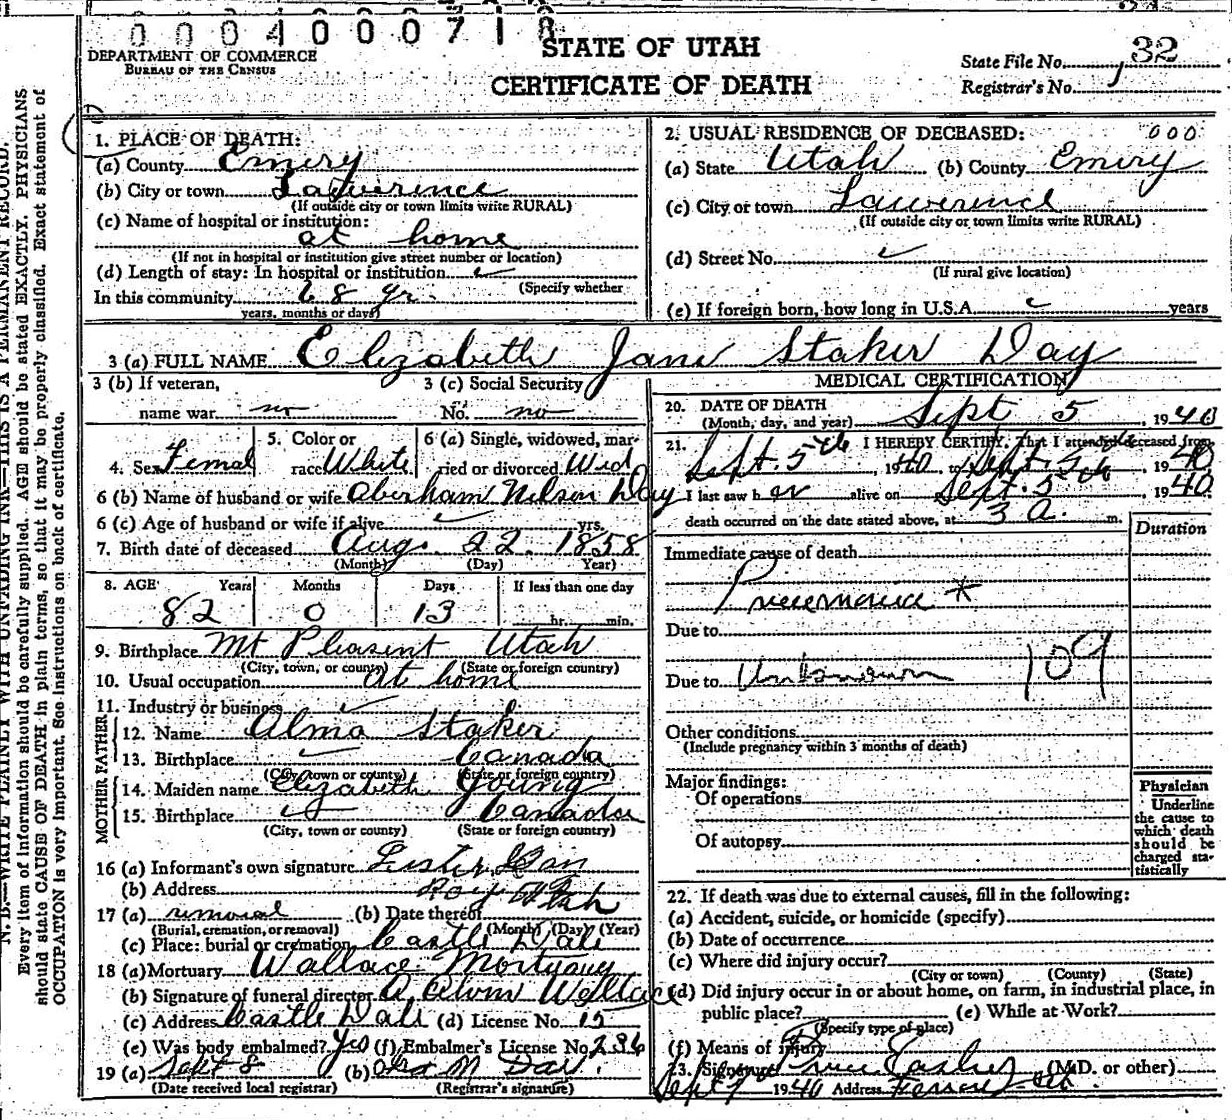 0004000718
STATE OF UTAH
CERTIFICATE OF DEATH
DEPARTMENT OF COMMERCE
BUREAU OF THE CENSUS
State File No. 32
Registrar's No. 1
N. B.—WRITE PLAINLY WITH UNFADING INK—THIS IS A PERMANENT RECORD.
Every item of information should be carefully supplied. AGE should be stated EXACTLY. PHYSICIANS
should state CAUSE OF DEATH in plain terms, so that it may be properly classified. Exact statement of
OCCUPATION is very important. See instructions on back of certificate.
1. PLACE OF DEATH:
(a) County Emery
(b) City or town Lawerence
(If outside city or town limits write RURAL)
(c) Name of hospital or institution:
at home
(If not in hospital or institution give street number or location)
(d) Length of stay: In hospital or institution
(Specify whether
In this community 68 yr.
years, months or days)
2. USUAL RESIDENCE OF DECEASED: 000
(a) State Utah (b) County Emery
(c) City or town Lawerence
(If outside city or town limits write RURAL)
(d) Street No.
(If rural give location)
(e) If foreign born, how long in U.S.A. years
3 (a) FULL NAME Elizabeth Jane Staker Day
3 (b) If veteran, 3 (c) Social Security
name war no No. no
4. Sex Femal 5. Color or race White 6 (a) Single, widowed, married or divorced Wid
6 (b) Name of husband or wife Aberham Nilson Day
6 (c) Age of husband or wife if alive yrs.
7. Birth date of deceased Aug. 22. 1858
(Month) (Day) Year)
8. AGE Years Months Days If less than one day
82 0 13 hr. min.
9. Birthplace Mt Pleasent Utah
(City, town, or county) (State or foreign country)
10. Usual occupation At home
11. Industry or business
FATHER
12. Name Alma Staker
13. Birthplace Canada
(City, town or county) (State or foreign country)
MOTHER
14. Maiden name Elizabeth Young
15. Birthplace Canada
(City, town or county) (State or foreign country)
16 (a) Informant's own signature Lester
(b) Address Roy Utah
17 (a) removal (b) Date thereof
(Burial, cremation, or removal) (Month) (Day) (Year)
(c) Place: burial or cremation Castle Dale
18 (a) Mortuary Wallace Mortuary
(b) Signature of funeral director A. Alvin Wallace
(c) Address Castle Dale (d) License No. 15
(e) Was body embalmed? Yes (f) Embalmer's License No. 236
19 (a) Sept 8 (b) M Day.
(Date received local registrar) (Registrar's signature)
MEDICAL CERTIFICATION
20. DATE OF DEATH
(Month, day, and year) Sept 5, 1940
21. I HEREBY CERTIFY, That I attended deceased from
Sept. 5th, 1940, to Sept. 5th, 1940
I last saw her alive on Sept. 5, 1940.
death occurred on the date stated above, at 3 a. m.
Duration
Immediate cause of death
Pneumonia *
Due to
Due to Unknown 109
Other conditions
(Include pregnancy within 3 months of death)
Major findings:
Of operations
Of autopsy
Physician
Underline
the cause to
which death
should be
charged sta-
tistically
22. If death was due to external causes, fill in the following:
(a) Accident, suicide, or homicide (specify)
(b) Date of occurrence
(c) Where did injury occur?
(City or town) (County) (State)
(d) Did injury occur in or about home, on farm, in industrial place, in
public place? (e) While at Work?
(Specify type of place)
(f) Means of injury
23. Signature (M.D. or other)
Sept 7 1940 Address